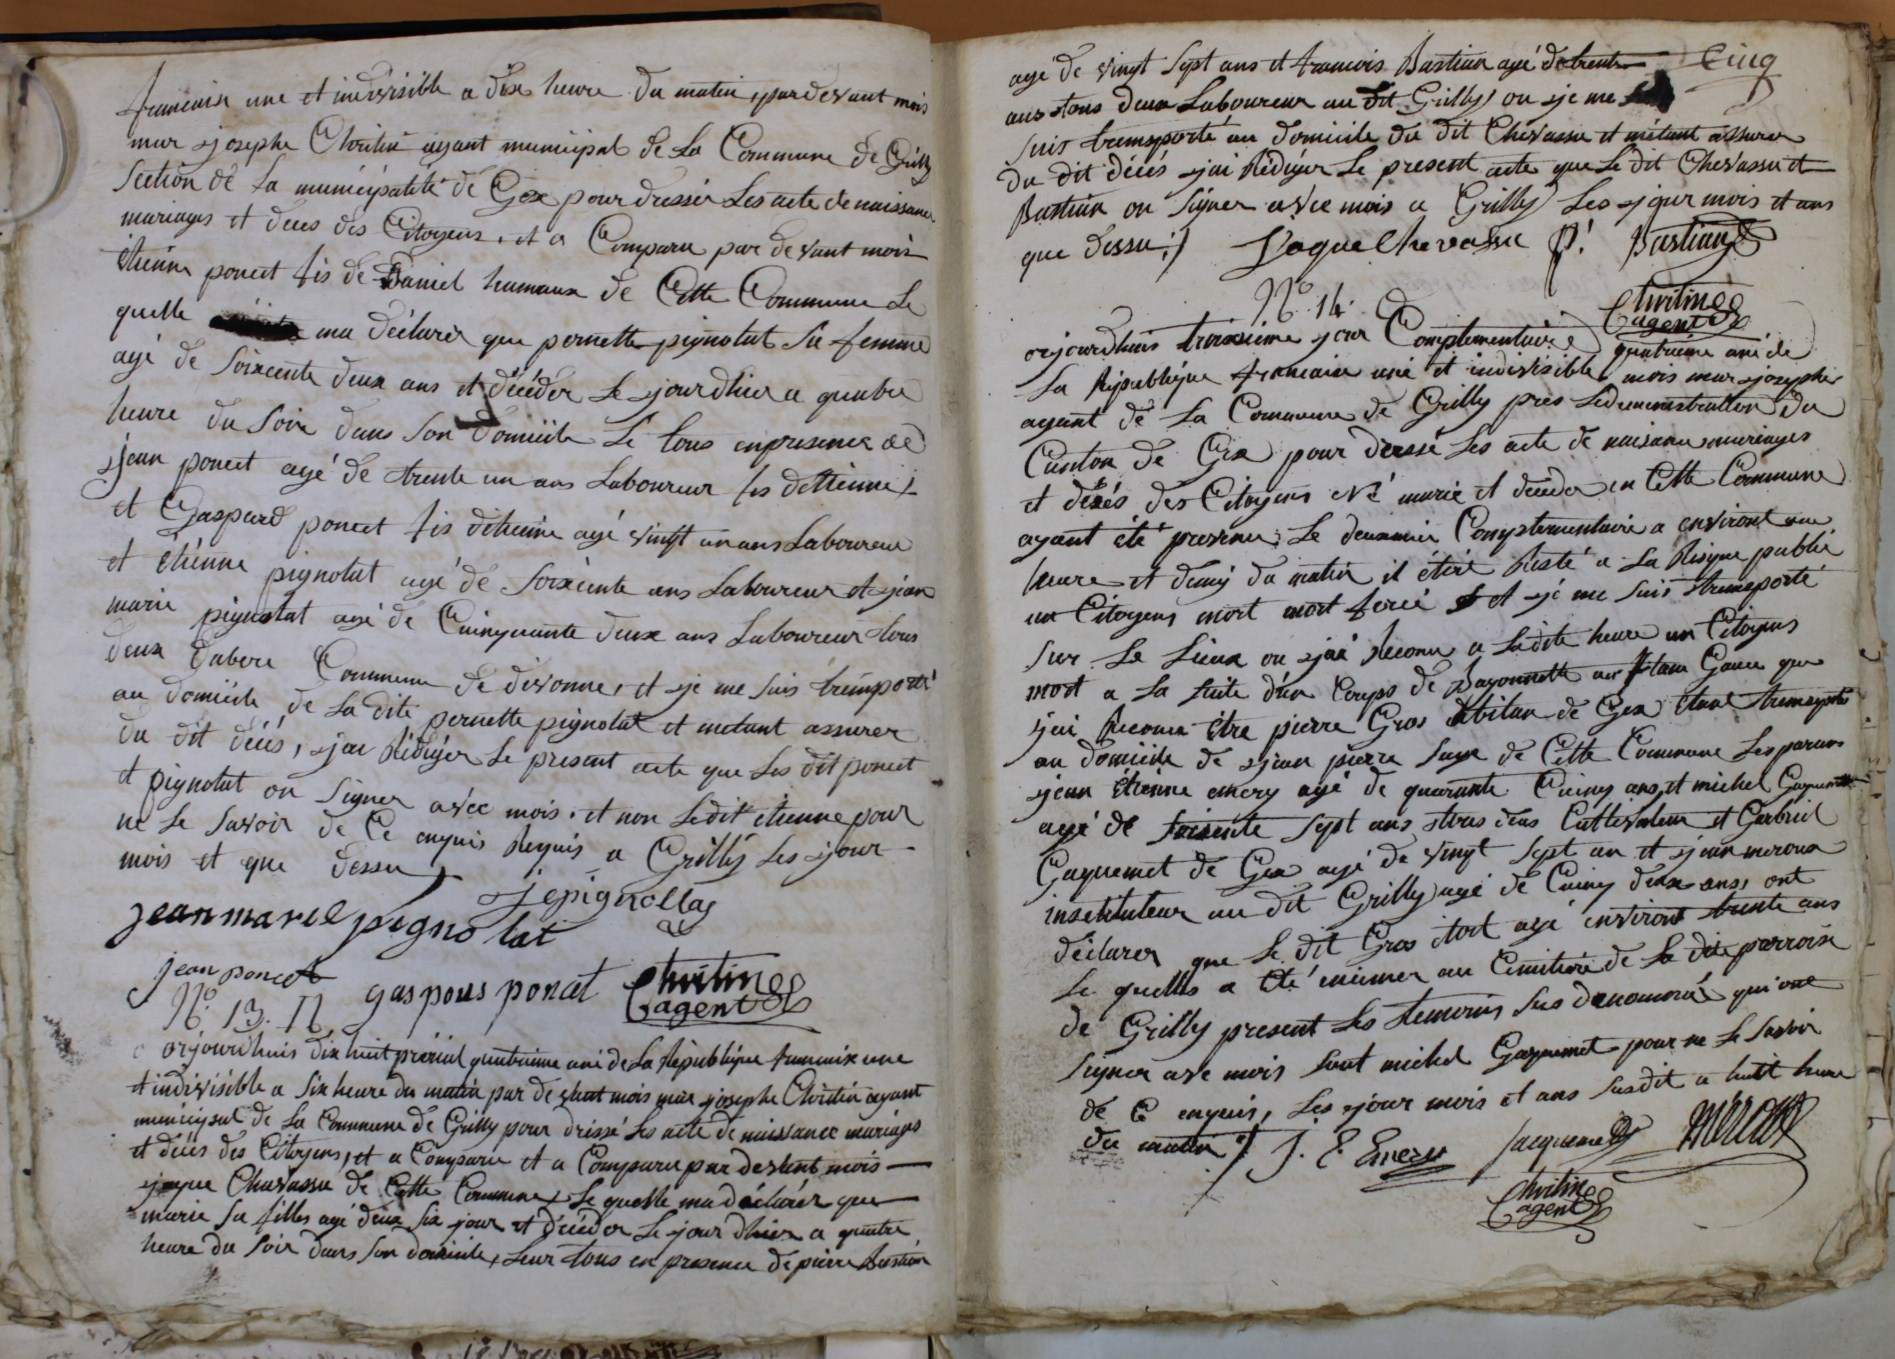 francaix une et indivisible a dix heure du matin, par devant mois
mur joseph Chritin agant municipal de La Commune de Grilly
Section de La municipalité de Gex pour dresser Les acte de naissance
mariages et deces des Citoyens, et a Comparu par devant mois
étienne poncet fis de Daniel humaux de Cette Commune Le
quelle ma déclarer que pernette pignolat Sa femme
agé de Soixcente deux ans et décéder Le jourdhier a quatre
heure du Soire dans Son domicile Le tous en presence de
jean poncet agé de trente un ans Laboureur fis détienne
et Gaspard poncet fis détienne agé vingt un ans Laboureur
et étienne pignolat agé de Soixcente ans Laboureur et jean
marie pignolat agé de Cuinquante deux ans Laboureur tous
deux Commune de divonne, et je me Suis tremporté
au domicile de La dite pernette pignolat et metant assurer
du dit décés, jai Rédiger Le present acte que Les dit poncet
et pignolat on Signer avec mois, et non Ledit étienne pour
ne Le Savoir de Ce enquis Requis a Grilly Les jour
mois et que dessu
jepignollas
jean marie pignolat
jean poncet
gaspous poncet
Chritin
agent
N° 13.
orjourdhuis dix huit prérial quatrieme ané de La République francaix une
et indivisible a Six heure du matin par devant mois mur joseph Chritin agant
municipal de La Commune de Grilly pour drissé Les acte de naissance mariages
et déces des Citoyens, et a Comparu et a Comparu par devant mois
jaque Chevassu de Cette Commune, Le quelle ma déclarér que
marie Sa filles agé deux Six jour et décéder Le jour dhier a quatre
heure du Soir dans Son domicile, Leur tous en presence de pierre Bastian
Cinq
agé de vingt Sept ans et francois Bastian agé de trente
ans tous deux Laboureur au dit Grilly ou je me
Suis tremsporté au domicile du dit Chevassu et métant assurer
du dit décés jai Rédiger Le present acte que Le dit Chevassu et
Bastian on Signer avec mois a Grilly Les jour mois et ans
que dessu Jaque Chevassu P. Bastian
Chritin
agent
N° 14.
orjourdhuis troixsieme jour Complementaire quatrieme ané de
La République francaix uné et indivisible mois mur joseph
agant de La Commune de Grilly pres Ladeministration du
Canton de Gex pour dressé Les acte de naisance, mariages
et décés des Citoyens né marié et décéder en Cette Commune
ayant été prevenu Le deuxieme Complementaire a environt une
heure et demy du matin il étéré Resté a La Risque publié
un Citoyens mort mort forcé et jé me Suis transporté
Sur Le Lieux ou jai Reconu a Ladite heure un Citoyens
mort a La Suite d'un Coups de Bayonnette au flanc Gauce que
jai Reconu être pierre Gros abitan de Gex étant tremsporté
au domicile de jean pierre de Cette Commune
jean étienne emery agé de quarante Cuinq ans, et michel Gaquemet
agé de Soixcente Sept ans tous deux Cultivateur et Gabriel
Gaquemet de Gex agé de vingt Sept an et jean meroux
insetituteur au dit Grilly agé de Cuinq deux ans, ont
déclarer que Le dit Gros étoit agé environt trente ans
Le quelles a été enimer au Cimitiére de La dite parroise
de Grilly present Les temoins Sus denommé qui ont
Signer ave mois Sauf michel Gaquemet pour ne Le Savoir
de C enquis, Les jour mois et ans Susdit a huit heure
du matin J. E. Emery Jacquemet Meroux
Chritin
agent